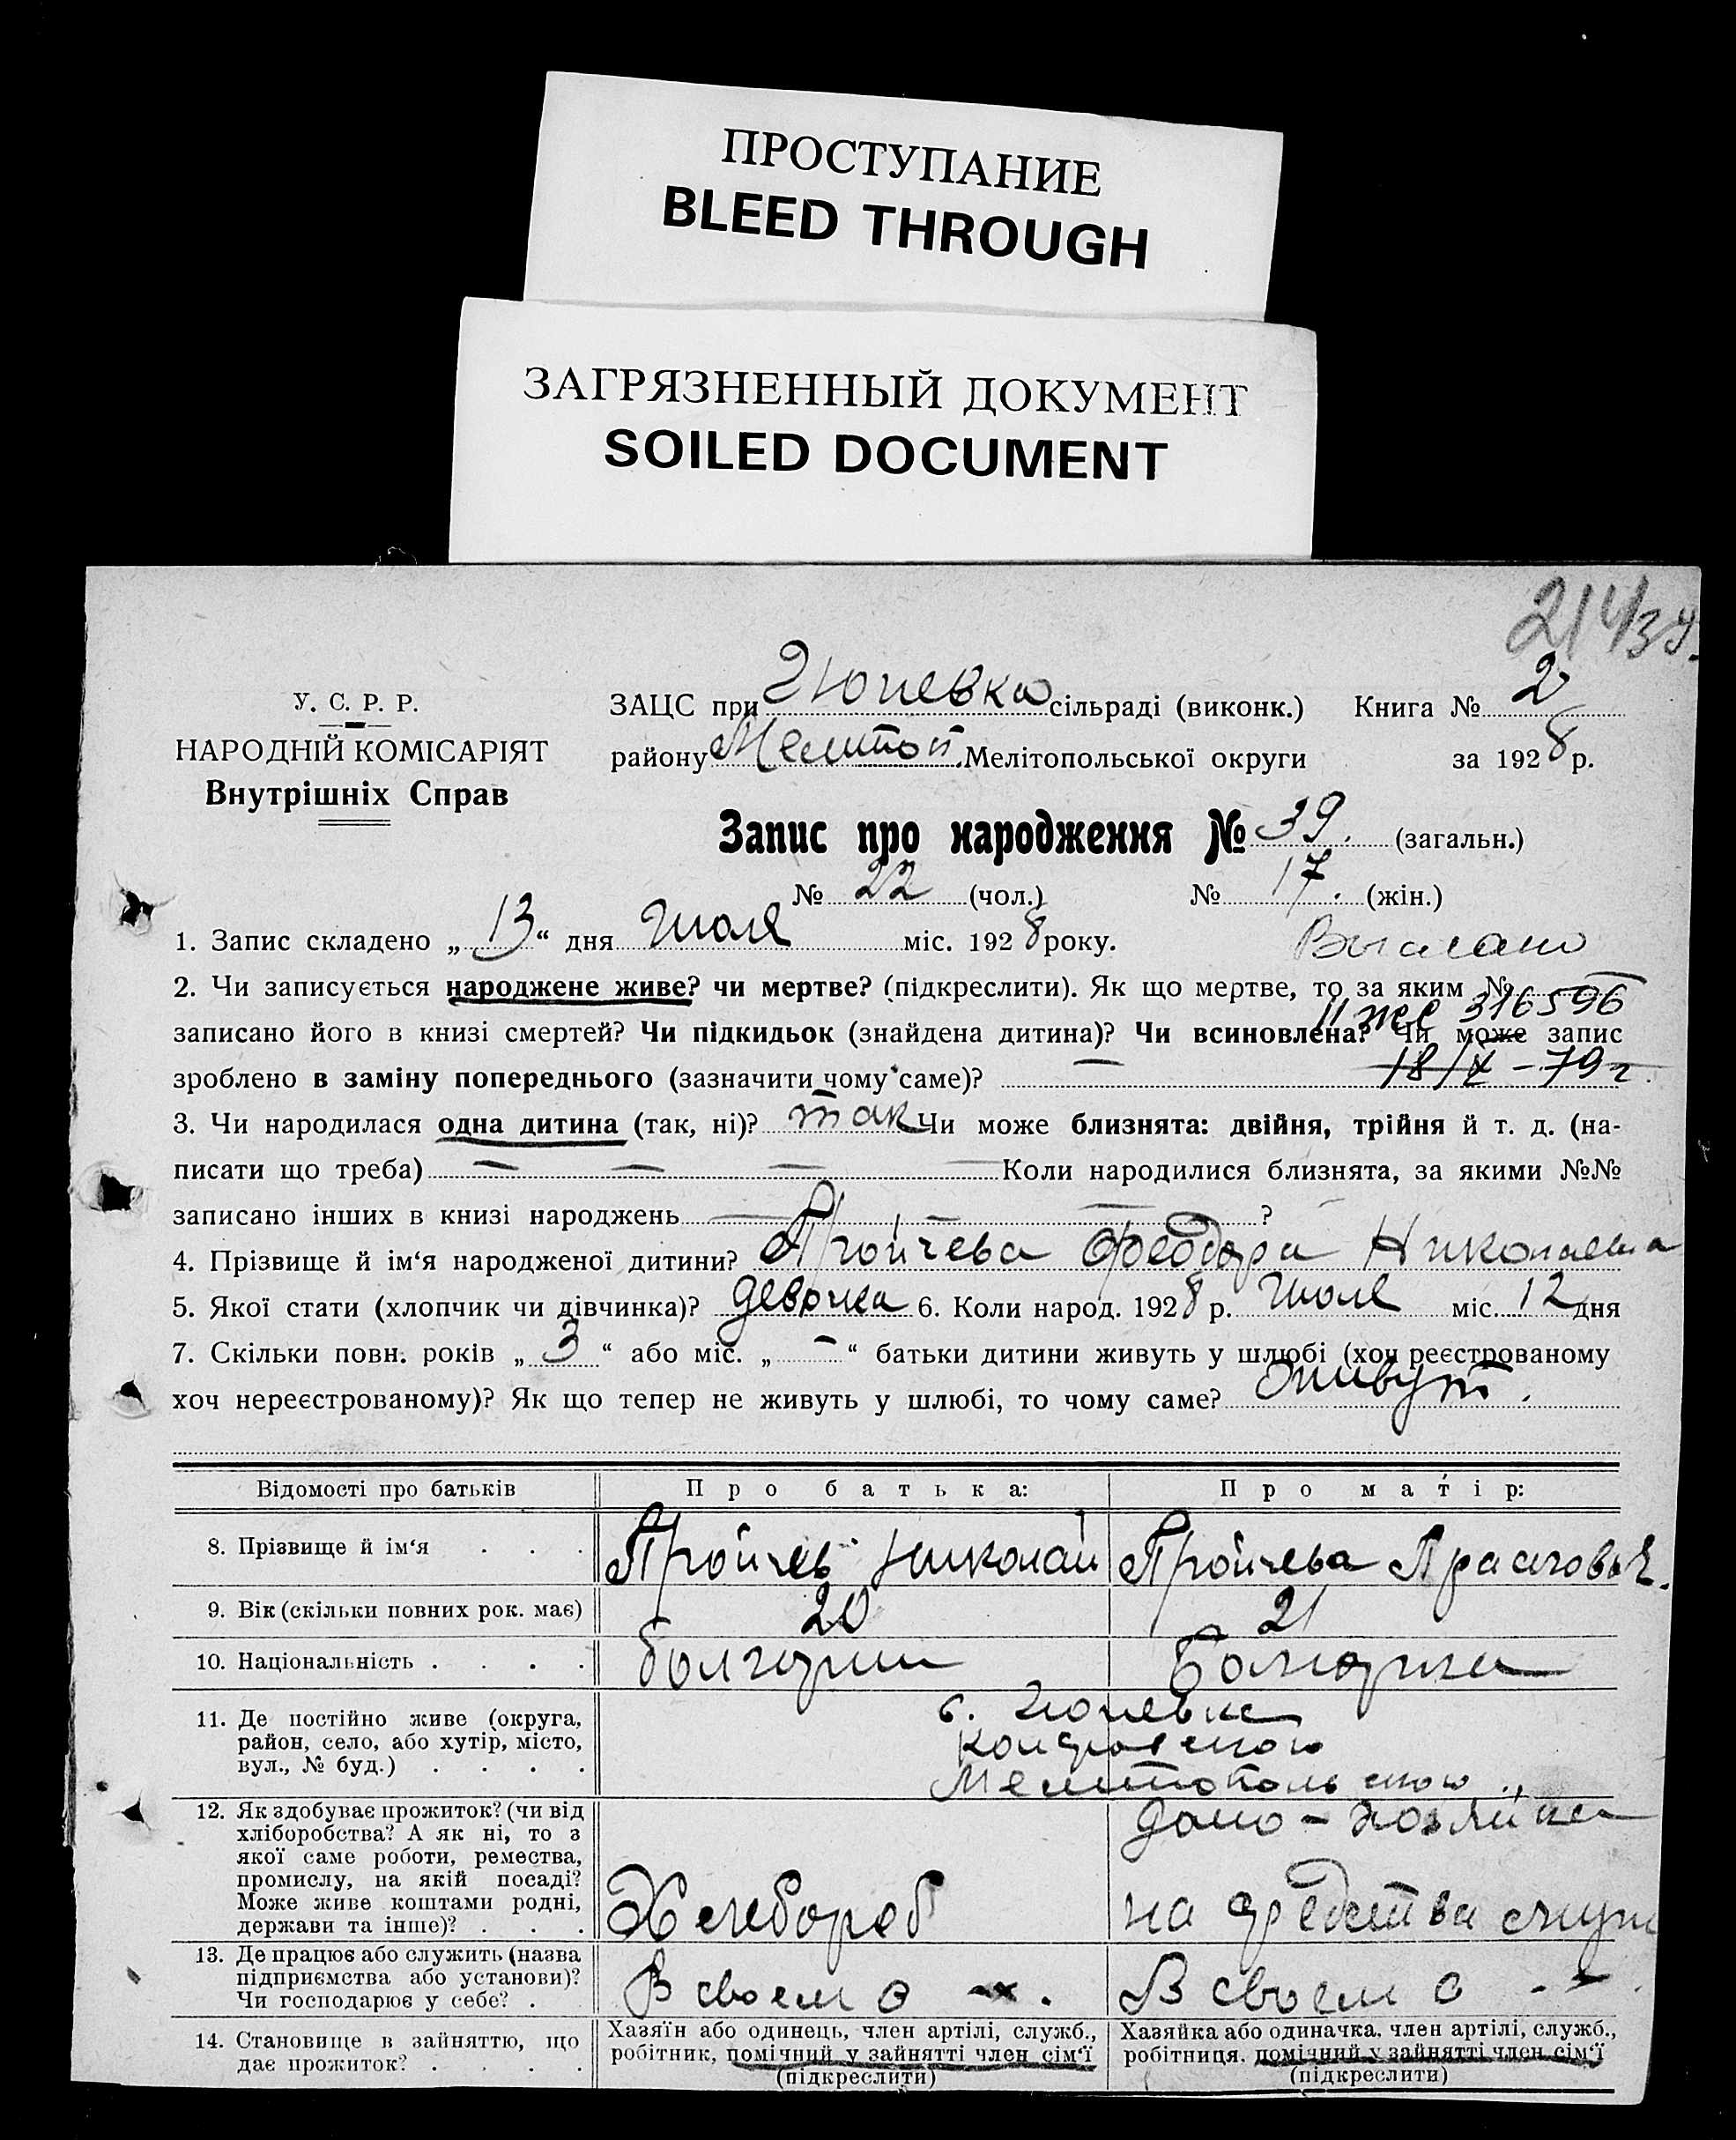 ПРОСТУПАНИЕ
BLEED THROUGH
ЗАГРЯЗНЕННЫЙ ДОКУМЕНТ
SOILED DOCUMENT
214/34.
У. С. Р. Р.
НАРОДНІЙ КОМІСАРІЯТ
Внутрішніх Справ
ЗАЦС при Гюневка сільраді (виконк.) Книга № 2
району Мелитоп. Мелітопольської округи за 1928 р.
Запис про народження № 39. (загальн.)
№ 22 (чол.) № 17. (жін.)
1. Запис складено „ 13 “ дня Июля міс. 1928 року.
2. Чи записується народжене живе? чи мертве? (підкреслити). Як що мертве, то за яким №
записано його в книзі смертей? Чи підкидьок (знайдена дитина)? Чи всиновлена? Чи може запис
II 316596
зроблено в заміну попереднього (зазначити чому саме)? — 18/X - 79 г.
3. Чи народилася одна дитина (так, ні)? так Чи може близнята: двійня, трійня й т. д. (на-
писати що треба) — — — — Коли народилися близнята, за якими №№
записано інших в книзі народжень — — — ?
4. Прізвище й ім‘я народженої дитини? Пройчева Феодора Николаевна
5. Якої стати (хлопчик чи дівчинка)? девочка 6. Коли народ. 1928 р. Июля міс. 12 дня
7. Скільки повн. років „ 3 “ або міс. „ — “ батьки дитини живуть у шлюбі (хоч реєстрованому
хоч нереєстрованому)? Як що тепер не живуть у шлюбі, то чому саме?
Відомості про батьків Про батька: Про матір:
8. Прізвище й ім‘я . . . Пройчев Николай Пройчева
9. Вік (скільки повних рок. має) 20 21
10. Національність . . . . болгарин Болгарка
11. Де постійно живе (округа,
район, село, або хутір, місто,
вул., № буд.) . . . .
с. Гюневка
Мелитопольского
12. Як здобуває прожиток? (чи від
хліборобства? А як ні, то з
якої саме роботи, ремества,
промислу, на якій посаді?
Може живе коштами родні,
держави та інше)? . . .
Хлебороб
домо-хозяйка
на средства
13. Де працює або служить (назва
підприємства або установи)?
Чи господарює у себе? .
В своем В своем
14. Становище в зайняттю, що
дає прожиток? . . . .
Хазяїн або одинець, член артілі, служб.,
робітник, помічний у зайнятті член сім‘ї
(підкреслити)
Хазяйка або одиначка, член артілі, служб.,
робітниця, помічний у зайнятті член сім‘ї
(підкреслити)